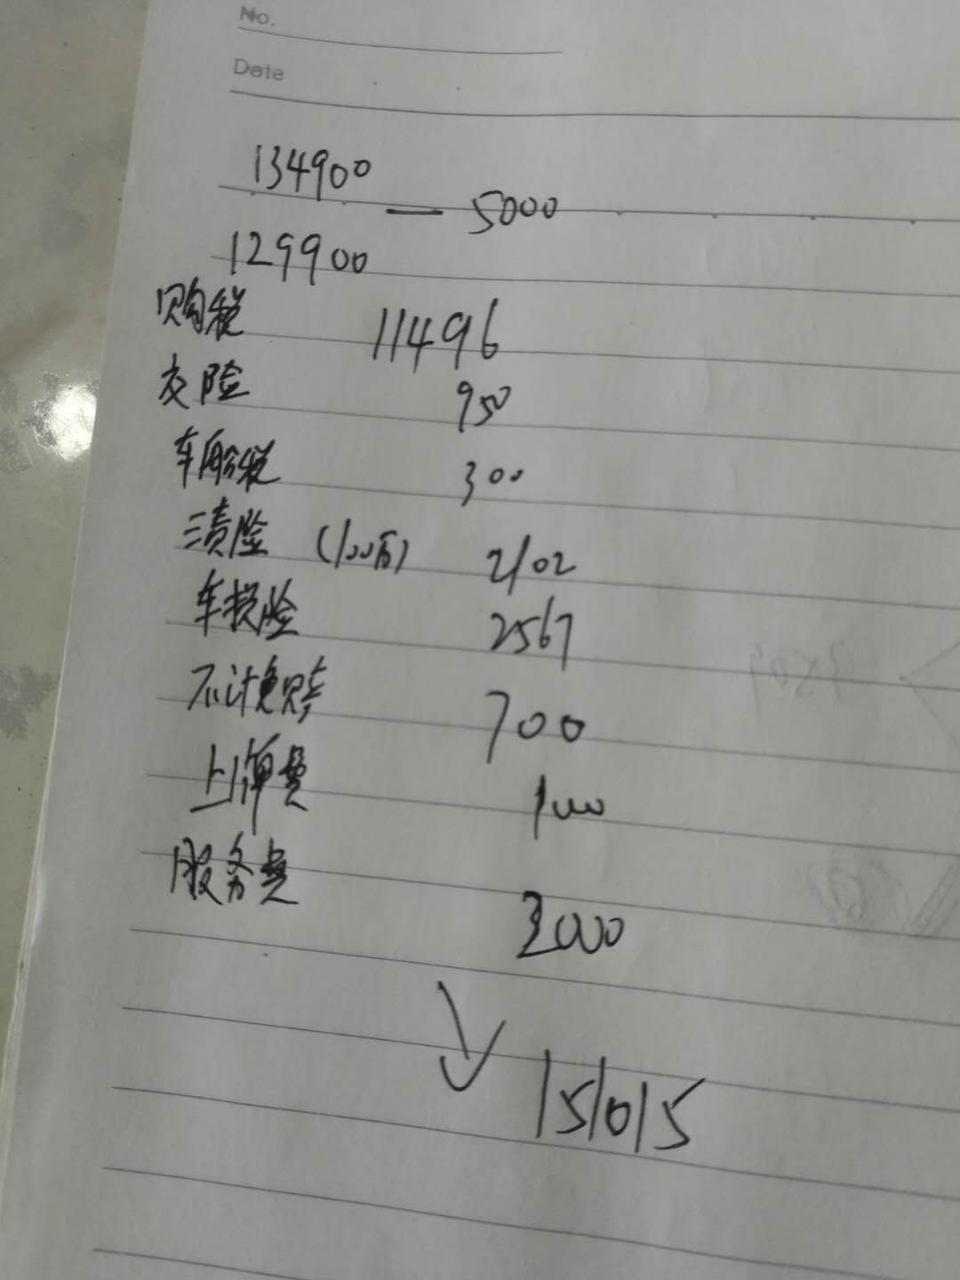 No.
Date
134900
— 5000
129900
购税 11496
交险 950
车船税 300
三责险 (100万) 2102
车损险 2567
不计免赔 700
上牌费 1000
服务费 2000
151015